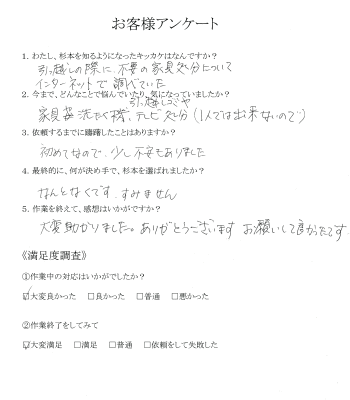 お客様アンケート
1. わたし、杉本を知るようになったキッカケはなんですか?
引っ越しの際に、不要の家具処分について
インターネットで調べていた
2. 今まで、どんなことで悩んでいたり、気になっていましたか?
引っ越しゴミや
家具 洗たく機、テレビ処分(1人では出来ないので)
3. 依頼するまでに躊躇したことはありますか?
初めてなので、少し不安もありました
4. 最終的に、何が決め手で、杉本を選ばれましたか?
なんとなくです、すみません
5. 作業を終えて、感想はいかがですか?
大変助かりました。ありがとうございます お願いして良かったです
《満足度調査》
①作業中の対応はいかがでしたか?
☑大変良かった □良かった □普通 □悪かった
②作業終了をしてみて
☑大変満足 □満足 □普通 □依頼をして失敗した